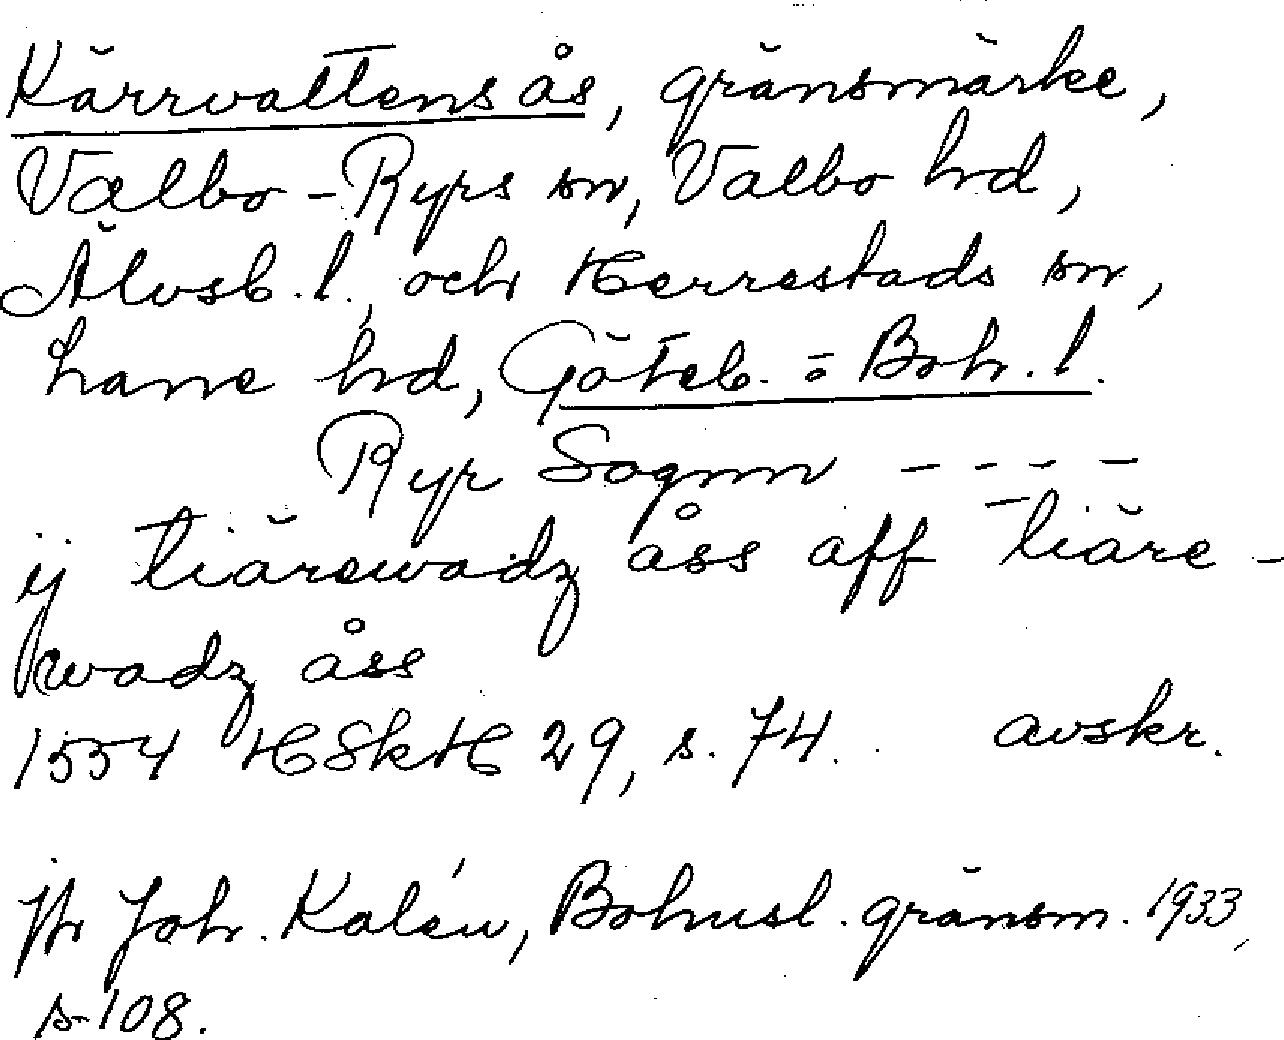 Kärrvattens ås, gränsmärke,
Valbo-Ryrs sn, Valbo hd,
Älvsb. l., och Herrestads sn,
Lane hd, Göteb. o Boh. l.
Ryr Sognn - - - -
ij tiärewadz åss aff tiäre-
wadz åss
1554 HSkH 29, s. 74. avskr.
Jfr Joh. Kalén, Bohusl. gränsm. 1933,
s. 108.